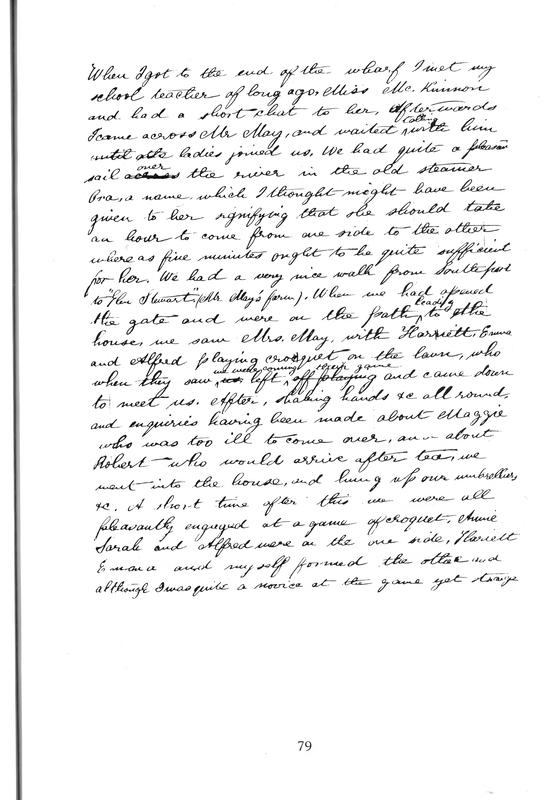 When I got to the end of the wharf I met my
school teacher of long ago Miss Mc. Kinnon
and had a short chat to her, afterwards
I came across Mr May, and waited talking with him
until the ladies joined us. We had quite a pleasant
sail across over the river in the old steamer
Ora, a name which I thought might have been
given to her signifying that she should take
an hour to come from one side to the other
whereas five minutes ought to be quite sufficient
for her. We had a very nice walk from Southport
to "Glen Stewart", (Mr. May's farm). When we had opened
the gate and were on the path, leading to the
house, we saw Mrs. May, with Harriett, Emma
and Alfred playing croquet on the lawn, who
when they saw us we were coming left off playing their game and came down
to meet us. After, shaking hands &c all round,
and enquiries having been made about Maggie
who was too ill to come over, and about
Robert who would arrive after tea, we
went into the house, and hung up our umbrellas,
&c. A short time after this we were all
pleasantly engaged at a game of croquet, Annie
Sarah and Alfred were on the one side, Harriett
Emma and myself formed the other and
although I was quite a novice at the game yet strange
79